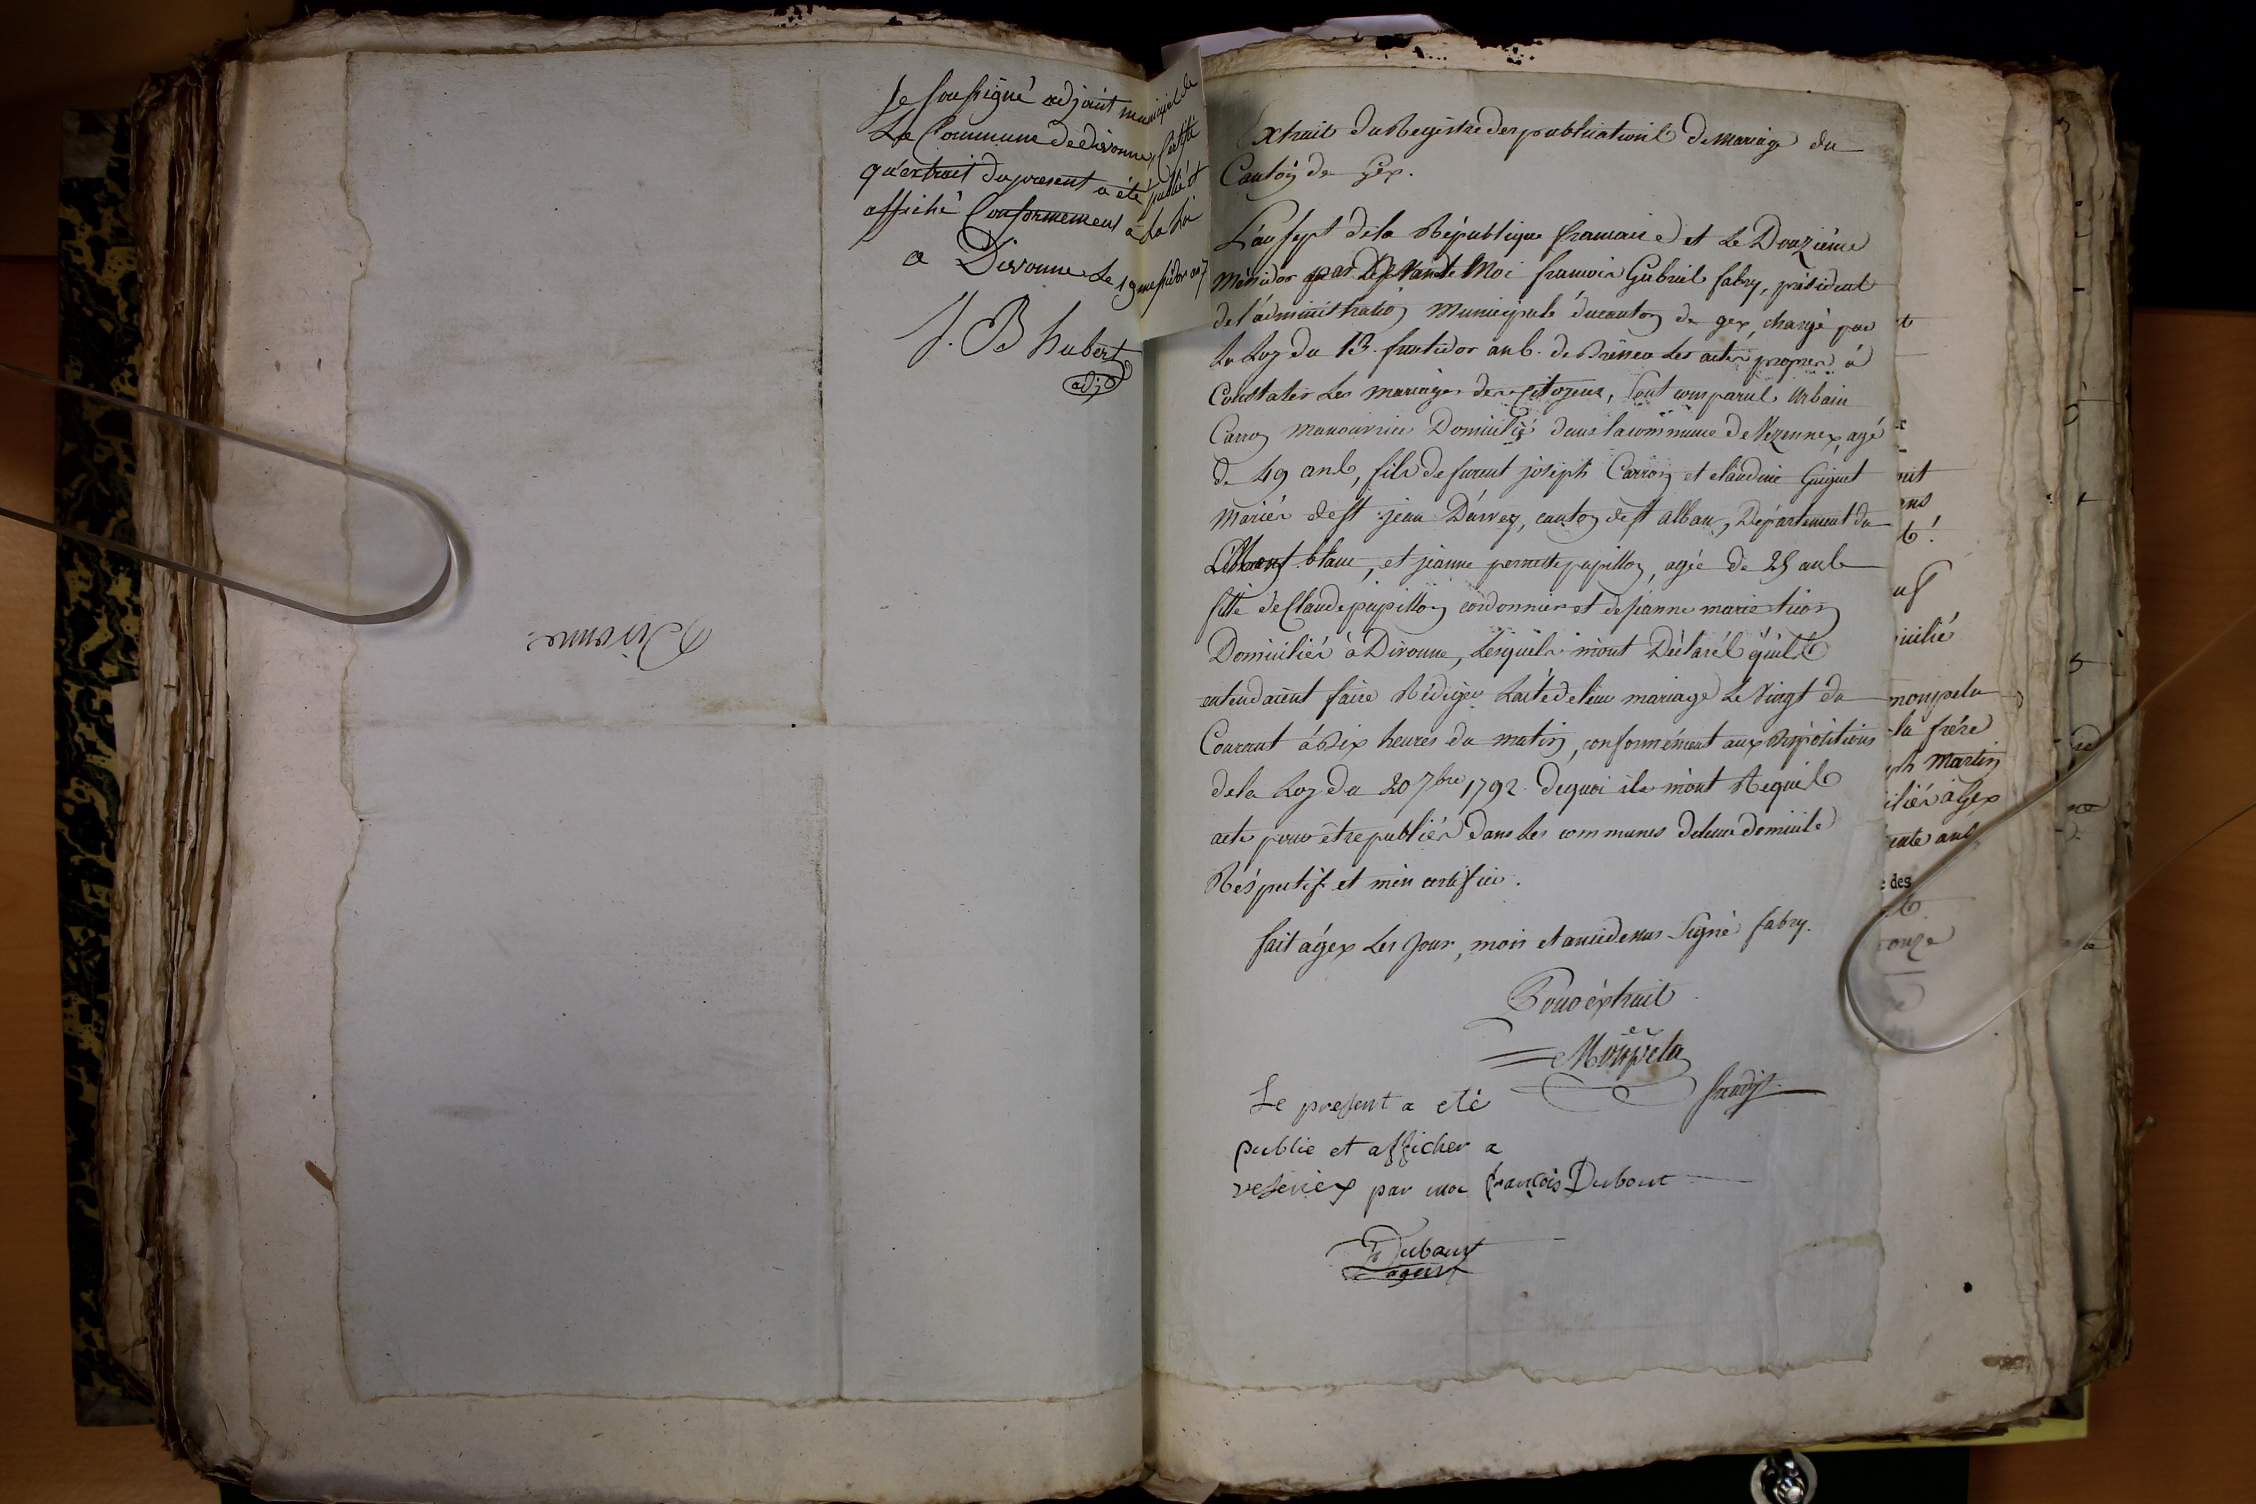 Je soussigné adjoint municipal de
La Commune de divonne, Certifie
qu'extrait du present a été publié et
affiché Conformement a La Loi
a Divonne Le 19 messidor an 7
J. B hubert
adjt
Divonne
Extrait du Registre des publications de mariage du
Canton de Gex.
L'an sept de la République francaise et Le Douzième
Messidor par Devant Moi francois Gabriel fabry, président
de l'administration Municipale du canton de gex, chargé par
La Loy du 13. fructidor an 6. de Dresser Les actes propres à
Constater Les mariages des Citoyens, Sont comparus Urbain
Carron manouvrier Domicilié dans la commune de Vezennex, agé
de 49 ans, fils de furent joseph Carron et claudine Guiguet
mariés de st jean D'arvey, canton de st alban, Departement du
Mont blanc, et jeanne pernette papillon, agée de 25 ans
fille de Claude papillon cordonnier et de jeanne marie tissot
Domiciliés à Divonne, Lesquels m'ont Déclarés qu'ils
entendaient faire Rédiger L'acte de leur mariage Le Vingt du
Courant à Dix heures du matin, conformément aux dispositions
de la Loy du 20 7bre 1792. dequoi ils m'ont Requis
acte pour être publiés dans Les communes de leur domicile
Réspectif et m'en certifier.
fait à gex Les Jour, mois et an ci dessus Signé fabry.
Pour éxtrait
Monpela
Le present a eté
publie et afficher a
vesenex par moi francois Dubout
F Dubout
agent
nt
ans
uilié
monpela
la frére
ph Martin
iliés à Gex
ente ans
e des
onze